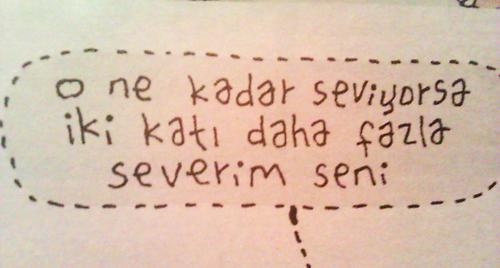 o ne kadar seviyorsa
iki katı daha fazla
severim seni